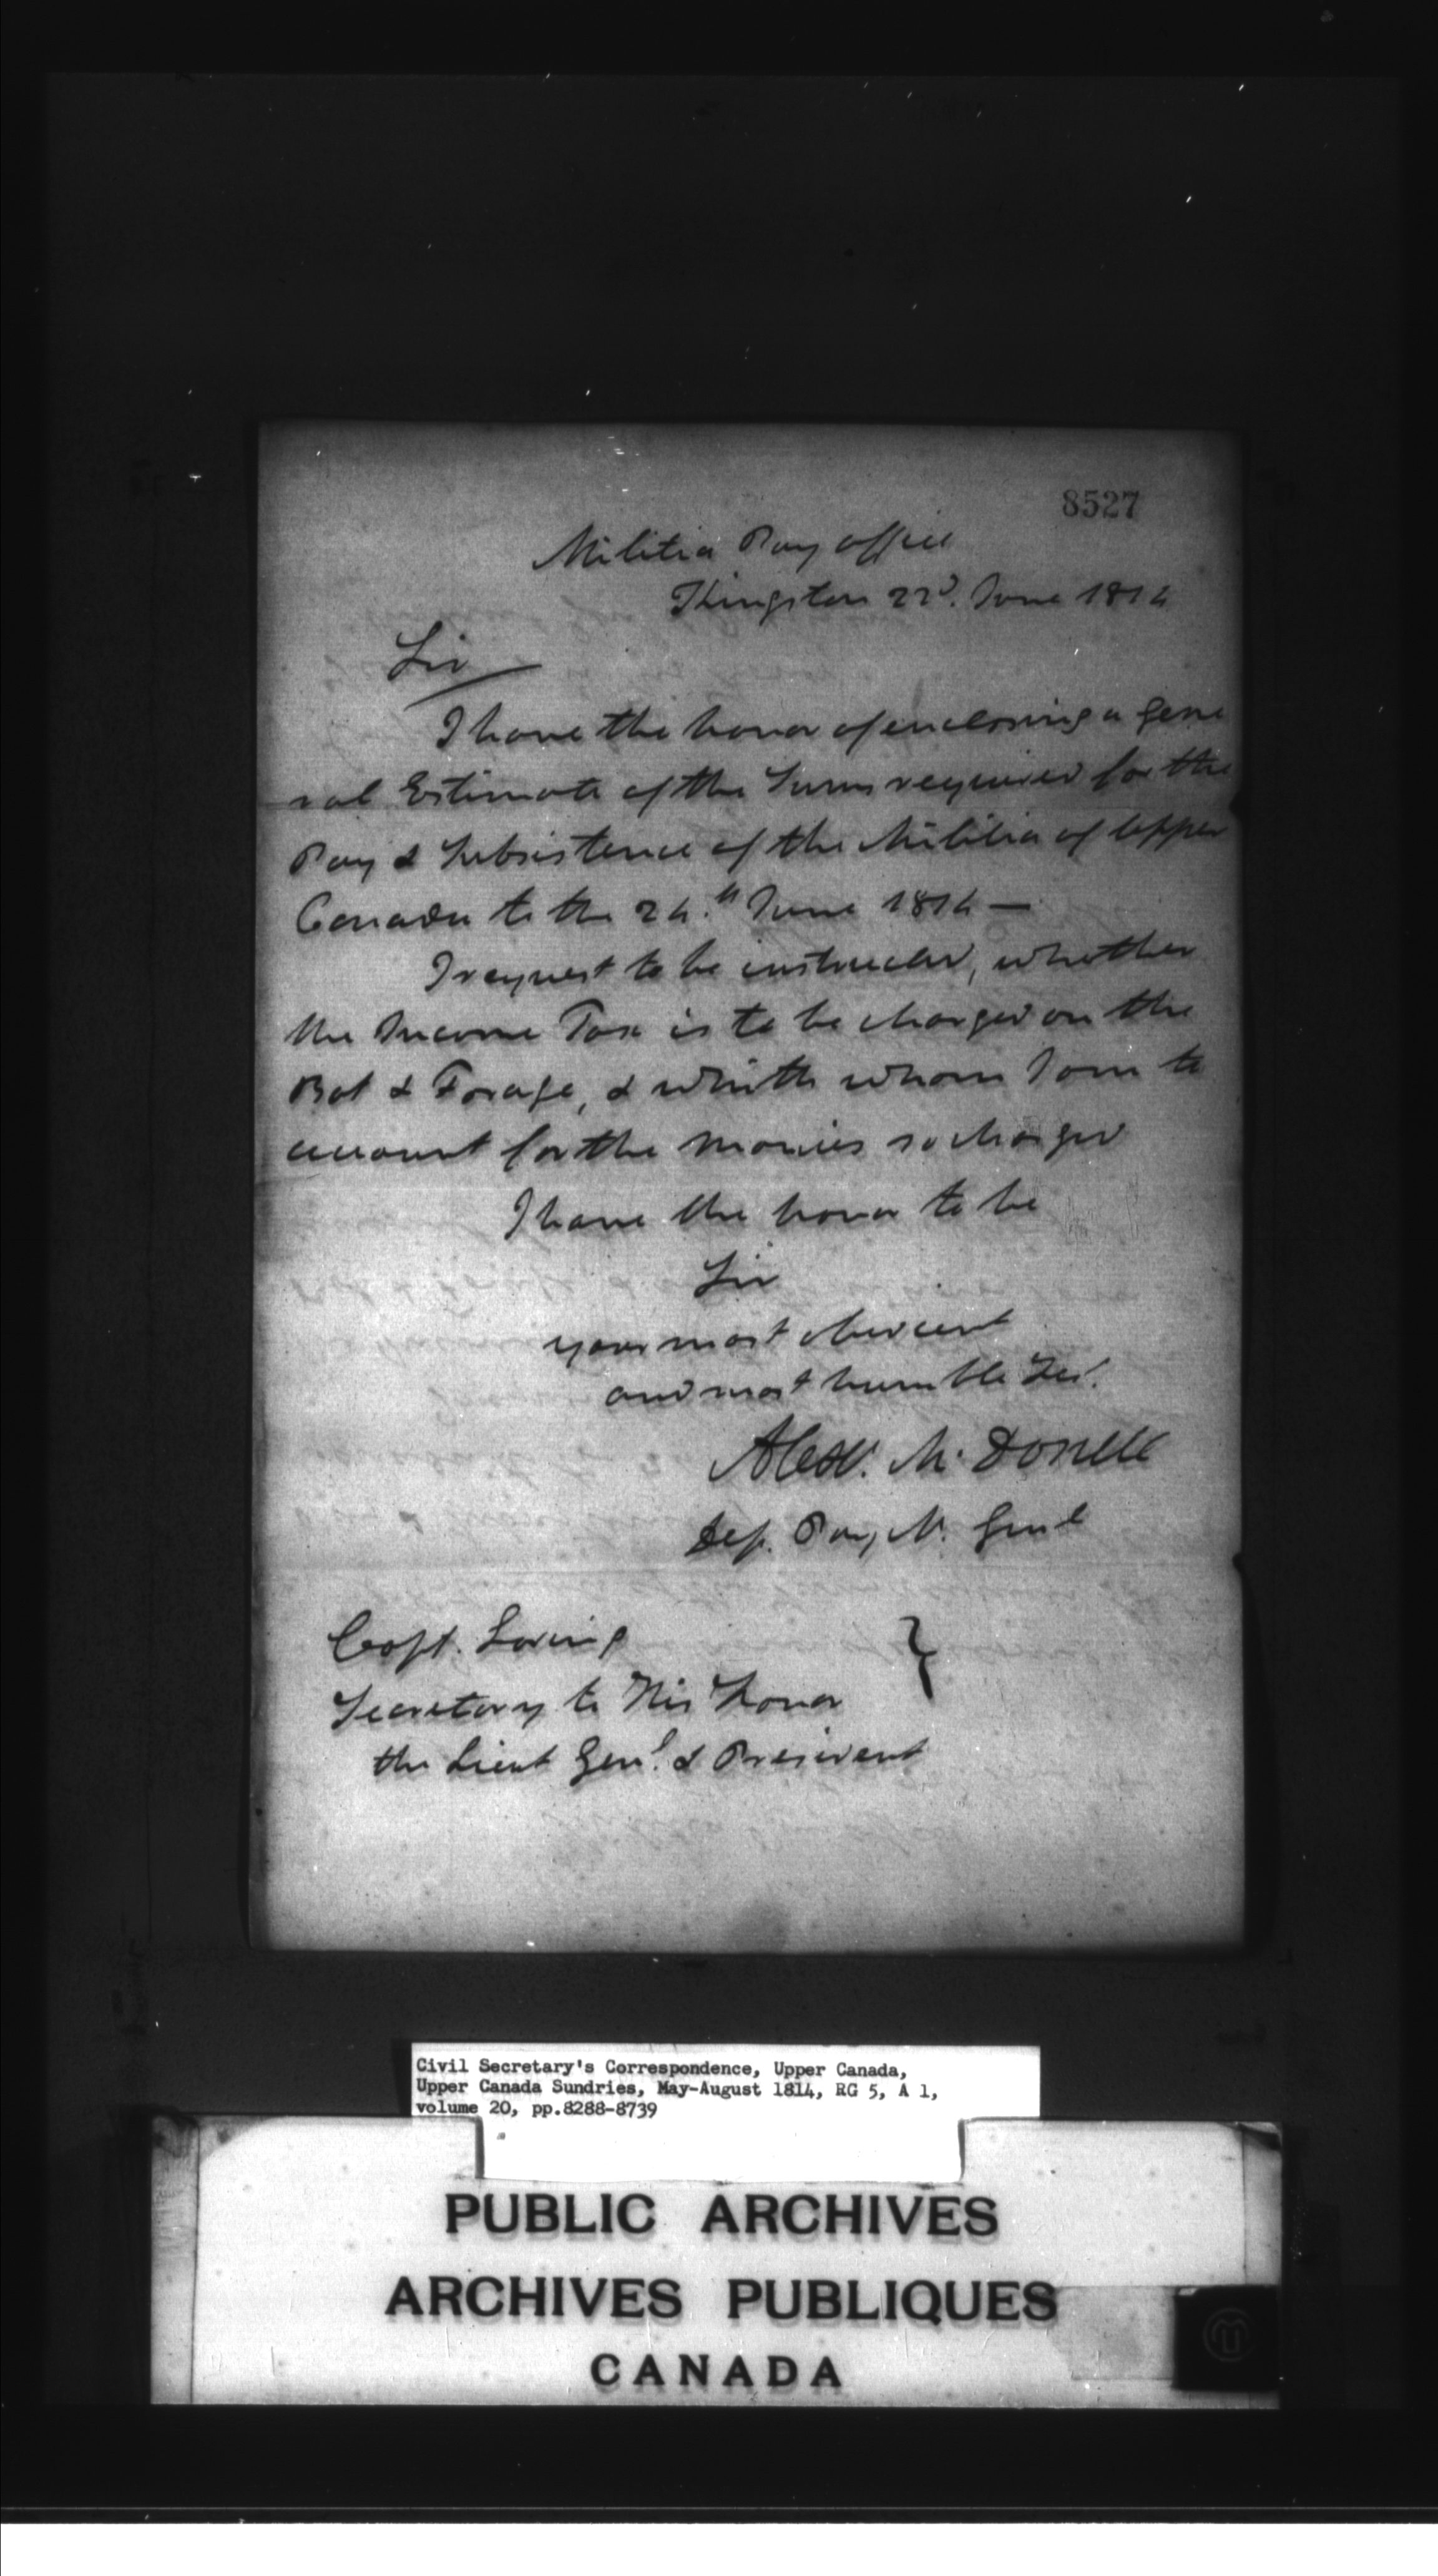 8527
Militia Pay office
Kingston 22d. June 1814
Sir
I have the honor of enclosing a gene
ral Estimate of the Sums required for the
Pay & Subsistence of the Militia of Upper
Canada to the 24.th June 1814 —
I request to be instructed, whether
the Income Tax is to be charged on the
Bat & Forage, & with whom I am to
account for the monies so charged
I have the honor to be
Sir
your most obedient
and most humble Ser.t
Alexr. McDonell
Dep. Pay M. Genl
Capt. Loring }
Secretary to His Honor
the Lieut Genl. & President
Civil Secretary's Correspondence, Upper Canada,
Upper Canada Sundries, May-August 1814, RG 5, A 1,
volume 20, pp.8288-8739
PUBLIC ARCHIVES
ARCHIVES PUBLIQUES
CANADA